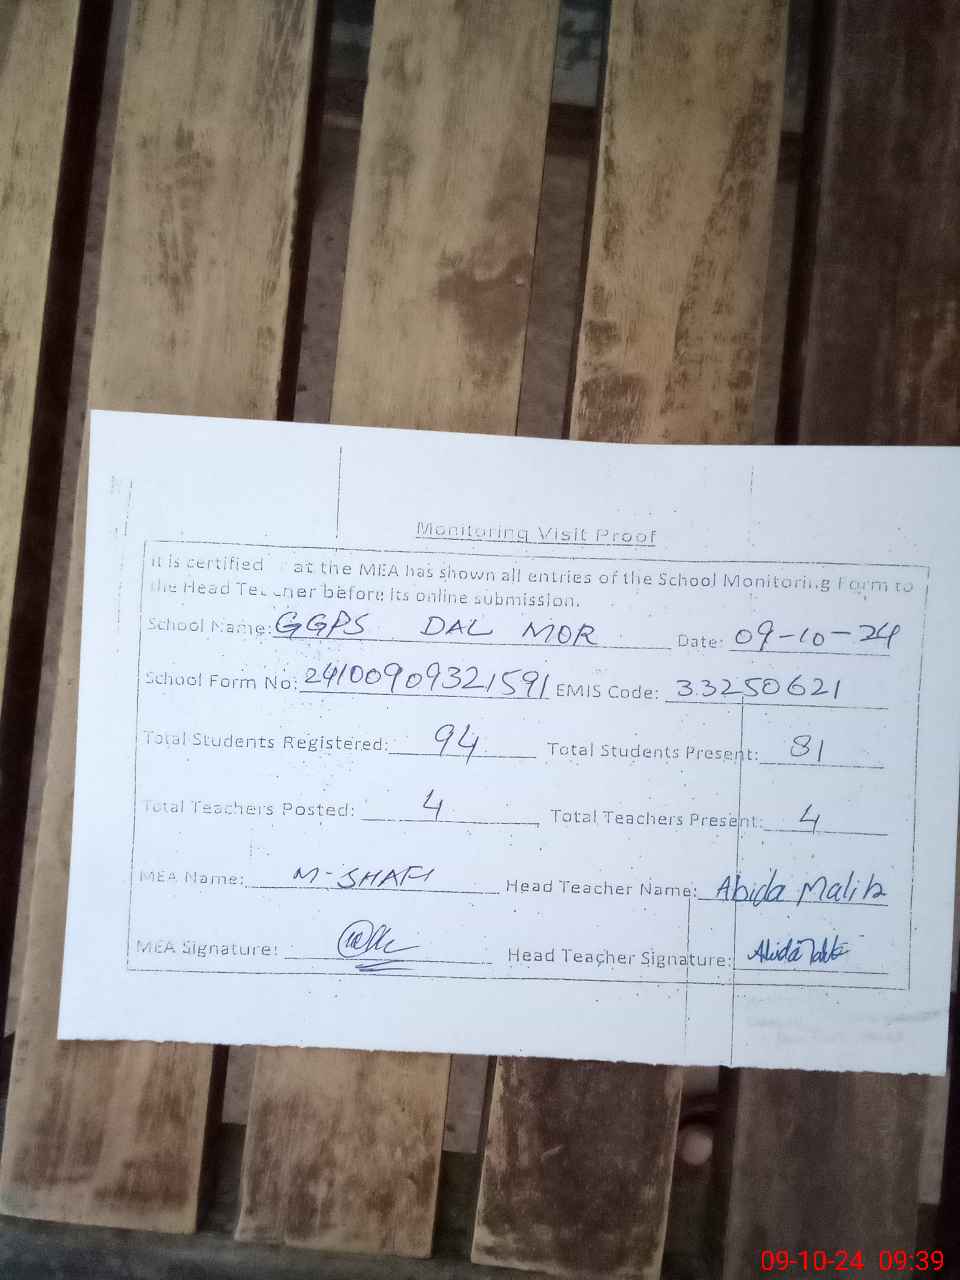 Monitoring Visit Proof
It is certified at the MEA has shown all entries of the School Monitoring Form to
the Head Teacher before its online submission.
School Name: GGPS DAL MOR Date: 09-10-24
School Form No: 24100909321591 EMIS Code: 33250621
Total Students Registered: 94 Total Students Present: 81
Total Teachers Posted: 4 Total Teachers Present: 4
MEA Name: M-SHAFI Head Teacher Name: Abida Malik
MEA Signature: Head Teacher Signature: Abida
09-10-24 09:39